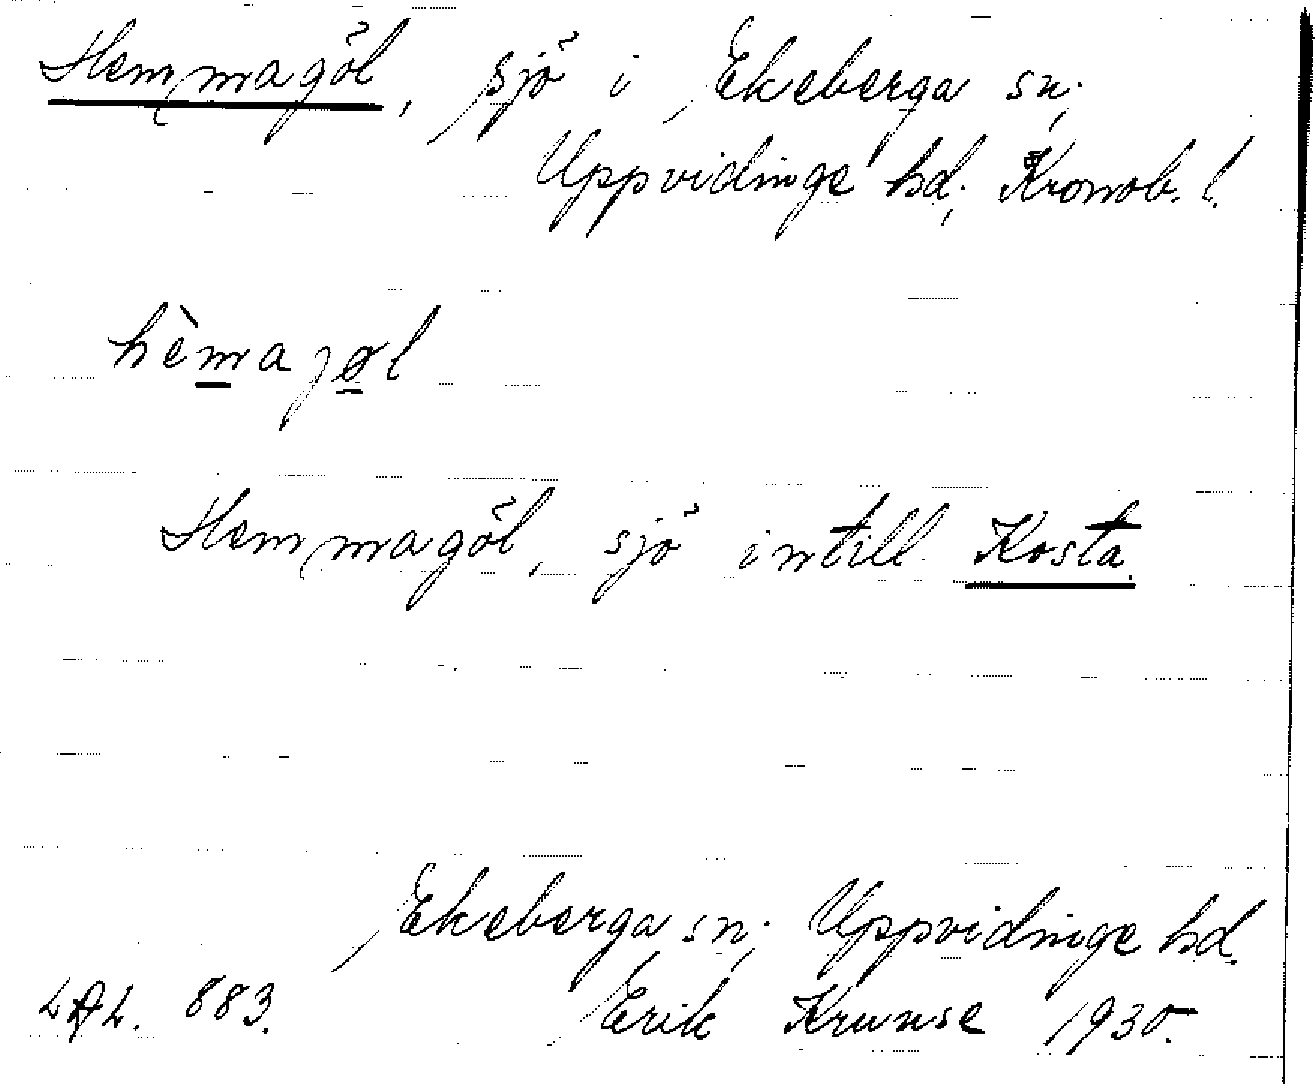 Hemmagöl, sjö i Ekeberga sn;
Uppvidinge hd; Kronob. l.
hèmajøl
Hemmagöl, sjö intill Kosta.
Ekeberga sn; Uppvidinge hd.
LAL. 883. Erik Krunse 1935.